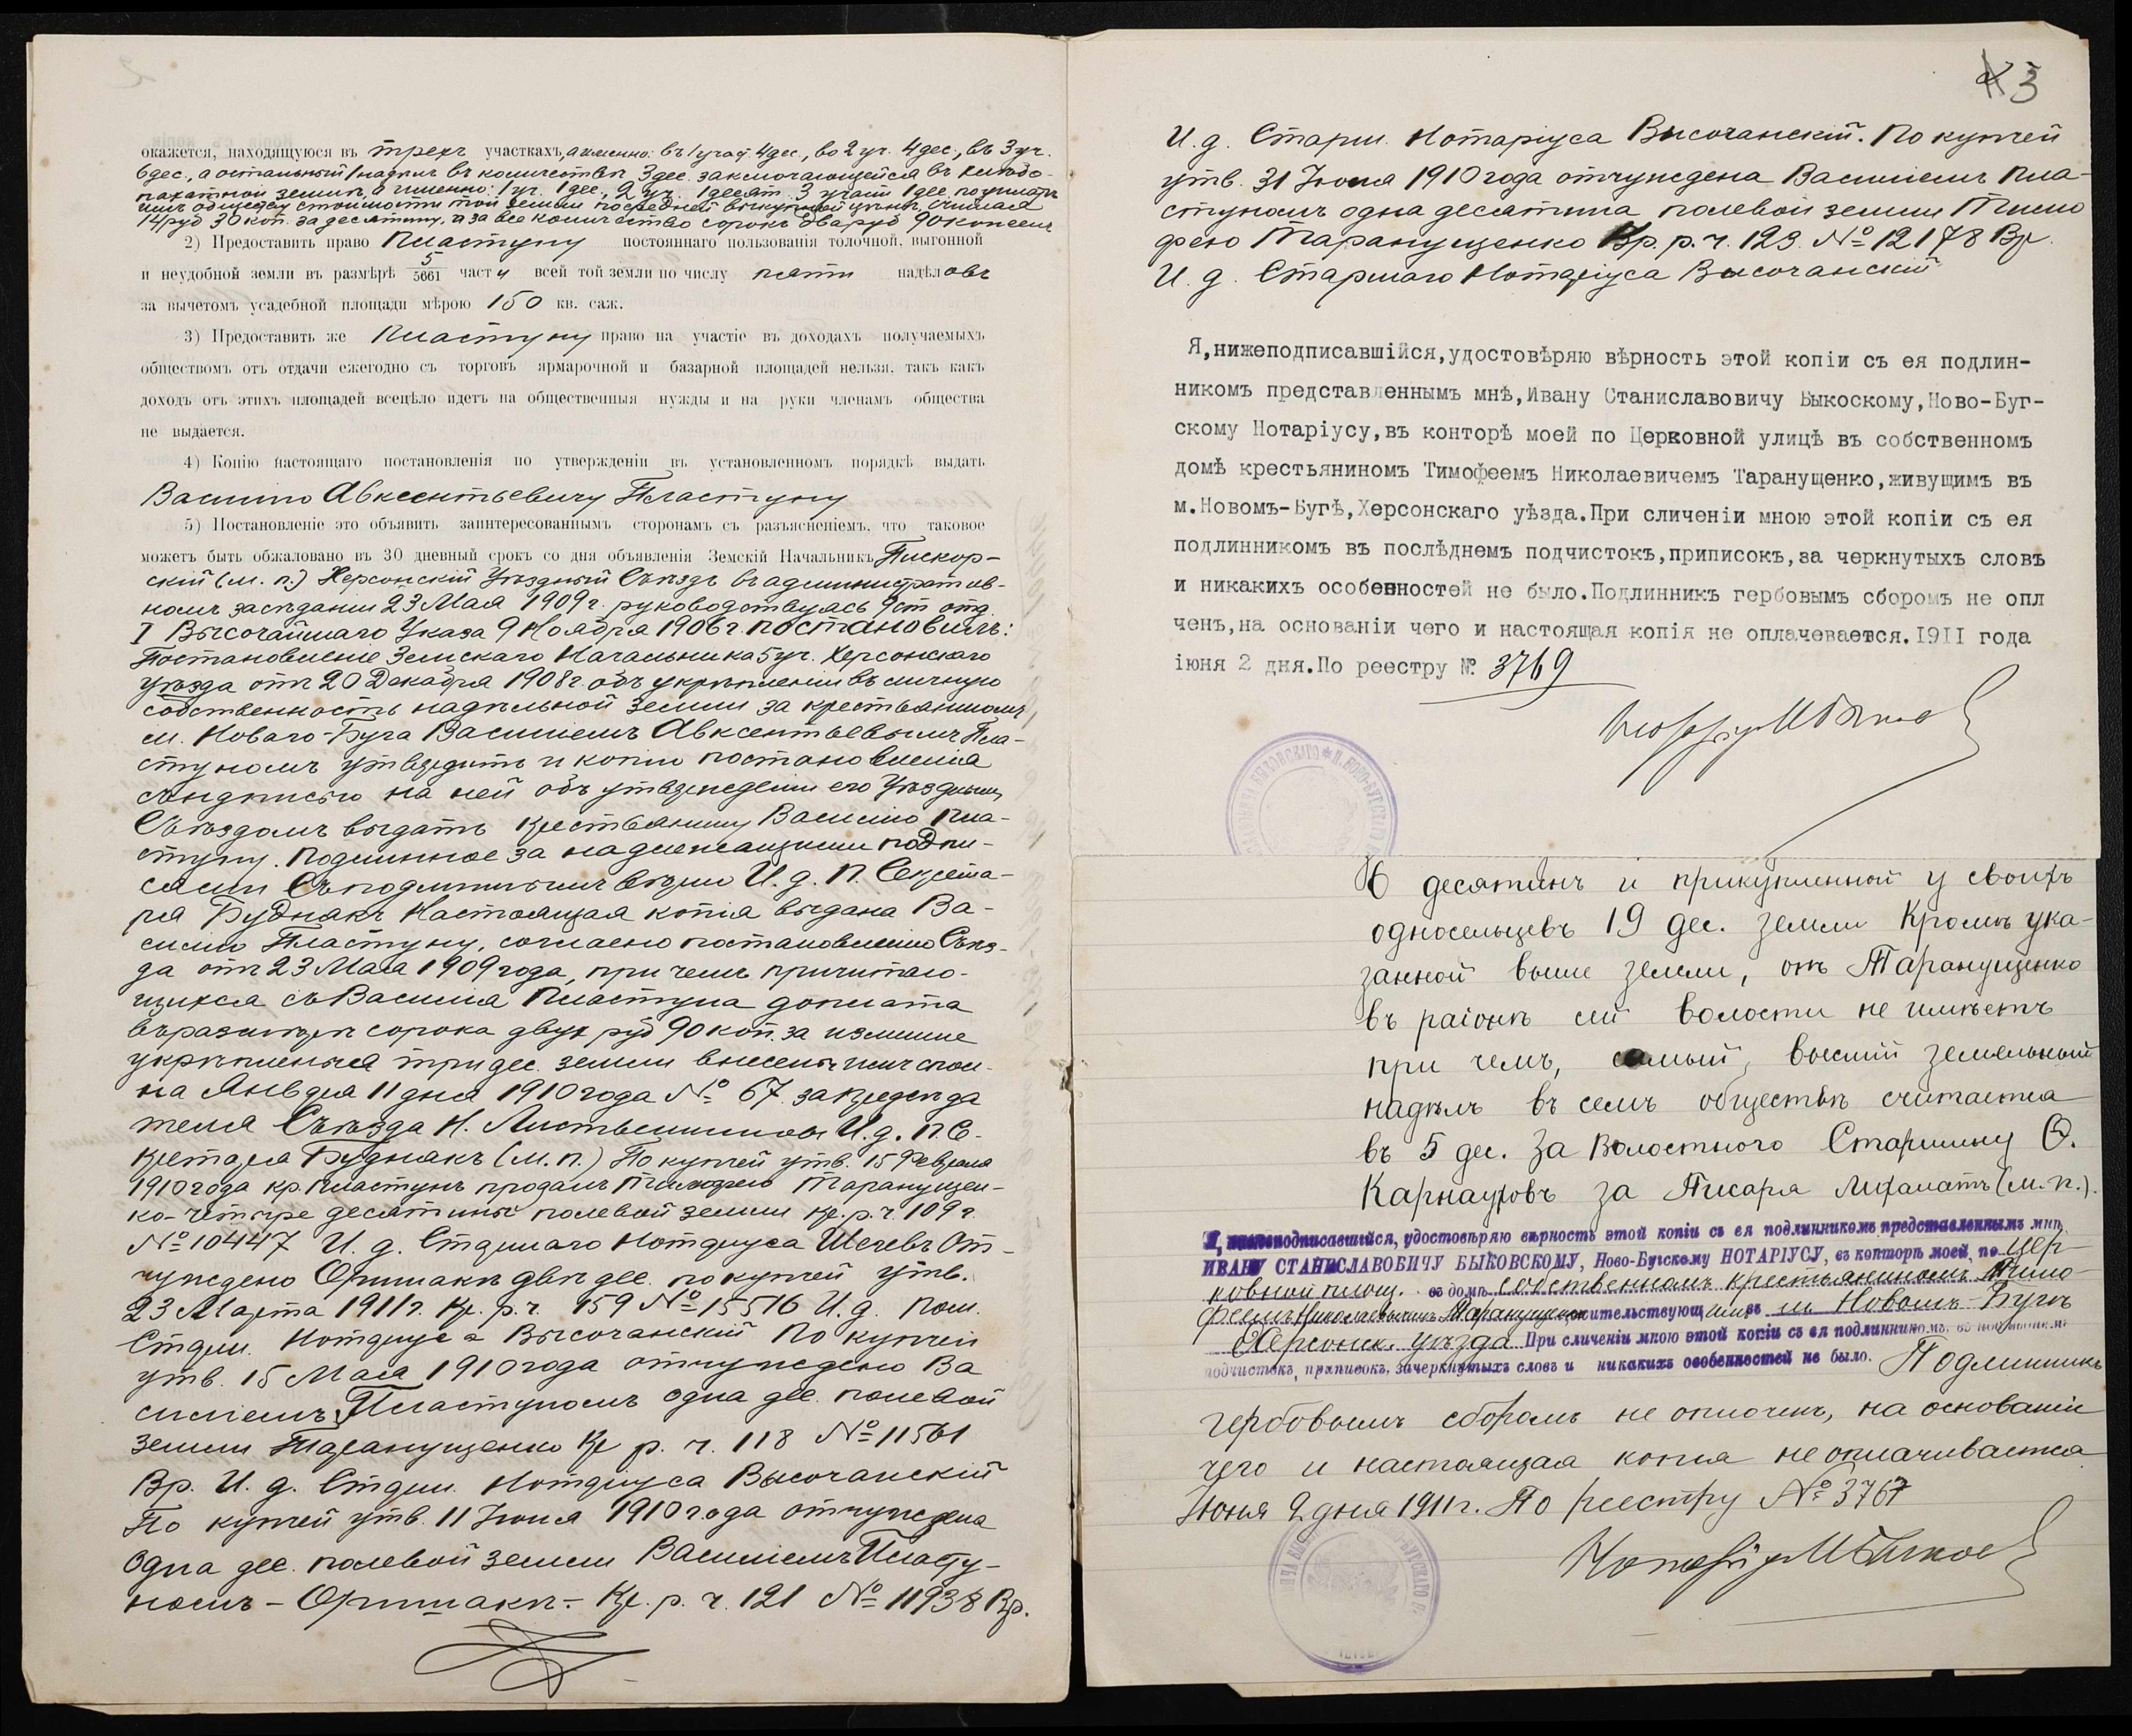 окажется, находящуюся въ трехъ участкахъ, а именно: въ 1 участ. 4 дес., во 2 уч. 4 дес., въ 3 уч.
6 дес., а остальной 1 надѣлъ въ количествѣ 3 дес. заключающейся въ
пахатной земли, а именно: 1 уч. 1 дес., 2 уч. 1 десят. 3 участ 1 дес. по уплатѣ
имъ обществу стоимости той земли по средней выкупной цѣнѣ, считая
14 руб 30 коп. за десятину, и за все количество сорокъ два руб 90 копеекъ
2) Предоставить право Пластуну постояннаго пользованія толочной, выгонной
и неудобной земли въ размѣрѣ 5/5661 части всей той земли по числу пяти надѣловъ
за вычетомъ усадебной площади мѣрою 150 кв. саж.
3) Предоставить же Пластуну право на участіе въ доходахъ получаемыхъ
обществомъ отъ отдачи ежегодно съ торговъ ярмарочной и базарной площадей нельзя, такъ какъ
доходъ отъ этихъ площадей всецѣло идетъ на общественныя нужды и на руки членамъ общества
не выдается.
4) Копію настоящаго постановленія по утвержденіи въ установленномъ порядкѣ выдать
Василію Авксентьевичу Пластуну
5) Постановленіе это объявить заинтересованнымъ сторонамъ съ разъясненіемъ, что таковое
можетъ быть обжаловано въ 30 дневный срокъ со дня объявленія Земскій Начальникъ Пискор-
скій (м. п.) Херсонскій Уѣздный Съѣздъ въ административ-
номъ засѣданіи 23 Мая 1909 г. руководствуясь 9 ст отд.
I Высочайшаго Указа 9 Ноября 1906 г. постановилъ:
Постановленіе Земскаго Начальника 5 уч. Херсонскаго
уѣзда отъ 20 Декабря 1908 г. объ укрѣпленіи въ личную
собственность надѣльной земли за крестьяниномъ
м. Новаго-Буга Василіемъ Авксентьевымъ Пла-
стуномъ утвердить и копію постановленія
съ надписью на ней объ утвержденіи его Уѣзднымъ
Съѣздомъ выдать крестьянину Василію Пла-
стуну. Подлинное за надлежащими подпи-
сями Съ подлиннымъ вѣрно И. д. П. Секрета-
ря Буднякъ Настоящая копія выдана Ва-
силію Пластуну, согласно постановленію Съѣз-
да отъ 23 Мая 1909 года, при чемъ причитаю-
щихся съ Василія Пластуна доплата
въ размѣрѣ сорока двух руб 90 коп. за излишне
укрѣпленныя три дес. земли внесены имъ спол-
на Января 11 дня 1910 года № 67. за Предсѣда
теля Съѣзда Н. И. д. П. Се-
кретаря Буднякъ (м. п.) По купчей утв. 15 Февраля
1910 года кр. Пластунъ продалъ Тимофею Таранущен-
ко - четыре десятины полевой земли кр. р. ч. 109 г.
№ 10447 И. д. Старшаго Нотаріуса Шечевъ От-
чуждено Оришакѣ двѣ дес. по купчей утв.
23 Марта 1911 г. Кр. р. ч. 159 № 15516 И. д. Пом.
Старш. Нотаріуса Высочанскій По купчей
утв. 15 Мая 1910 года отчуждено Ва
силіемъ Пластуномъ одна дес. полевой
земли Таранущенко Кр р. ч. 118 № 11561
Вр. И. д. Старш. Нотаріуса Высочанскій
По купчей утв. 11 Іюня 1910 года отчуждена
Одна дес. полевой земли Василіемъ Пласту-
номъ - Оришакѣ - Кр. р. ч. 121 № 11938 Вр.
3
И. д. Старш. Нотаріуса Высочанскій. По купчей
утв. 31 Іюля 1910 года отчуждена Василіемъ Пла-
стуномъ одна десятина полевой земли Тимо
фею Таранущенко Кр. р. ч. 123. № 12178 Вр.
И. д. Старшаго Нотаріуса Высочанскій
Я,нижеподписавшійся,удостовѣряю вѣрность этой копіи съ ея подлин-
никомъ представленнымъ мнѣ,Ивану Станиславовичу Быкоскому,Ново-Буг-
скому Нотаріусу,въ конторѣ моей по Церковной улицѣ въ собственномъ
домѣ крестьяниномъ Тимофеемъ Николаевичемъ Таранущенко,живущимъ въ
м.Новомъ-Бугѣ,Херсонскаго уѣзда.При сличеніи мною этой копіи съ ея
подлинникомъ въ послѣднемъ подчистокъ,приписокъ,за черкнутыхъ словъ
и никакихъ особенностей не было.Подлинникъ гербовымъ сборомъ не опл
ченъ,на основаніи чего и настоящая копія не оплачевается.1911 года
іюня 2 дня.По реестру № 3769
десятинъ и прикупленной у своихъ
односельцевъ 19 дес. земли Кромѣ ука-
занной выше земли, онъ Таранущенко
въ раіонѣ сей волости не имѣетъ
при чемъ, самый высшій земельный
надѣлъ въ семъ обществѣ считается
въ 5 дес. За Волостного Старшину Ѳ.
Карнауховъ за Писаря Лихаматъ (м. п.).
Я, нижеподписавшійся, удостовѣряю вѣрность этой копіи съ ея подлинникомъ представленнымъ мнѣ,
ИВАНУ СТАНИСЛАВОВИЧУ БЫКОВСКОМУ, Ново-Бугскому НОТАРІУСУ, въ конторѣ моей, по Цер-
ковной площ. въ домѣ собственномъ крестьяниномъ Тимо-
феемъ Николаевичемъ Таранущенко жительствующимъ въ м. Новомъ-Бугѣ
Херсонск. уѣзда При сличеніи мною этой копіи съ ея подлинникомъ, въ послѣднемъ
подчистокъ, приписокъ, зачеркнутыхъ словъ и никакихъ особенностей не было. Подлинникъ
гербовымъ сборомъ не оплоченъ, на основаніи
чего и настоящая копія не оплачивается
Іюня 2 дня 1911 г. По реестру № 3767